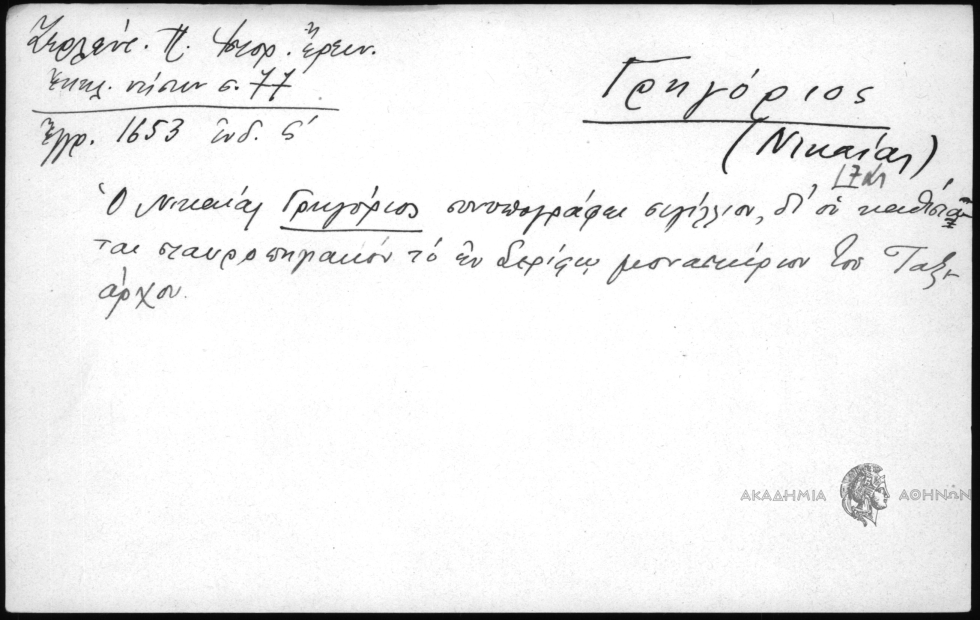 Ζερλέντ. Π. Ἱστορ. Ἔρευν.
Ἐκκλ. νήσων σ. 77
Ἔγγρ. 1653 ἰνδ. ς΄
Γρηγόριος
(Νικαίας)
Ὁ Νικαίας Γρηγόριος συνυπογράφει σιγίλλιον, δι' οὗ καθίστα
ται σταυροπηγιακόν τό ἐν Σερίφῳ μοναστήριον τοῦ Ταξι
άρχου.
ΑΚΑΔΗΜΙΑ ΑΘΗΝΩΝ